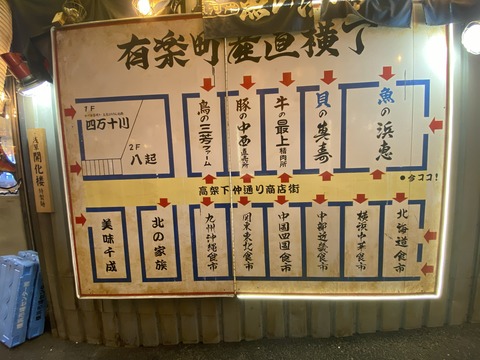 有楽町産直横丁
1F
四万十川
2F
八起
鳥の三芳ファーム
豚の中西直売所
牛の最上精肉所
貝の萬寿
魚の浜恵
●今ココ!
高架下仲通り商店街
美味千成
北の家族
九州沖縄食市
関東東北食市
中国四国食市
中部近畿食市
横浜中華食市
北海道食市
開化楼